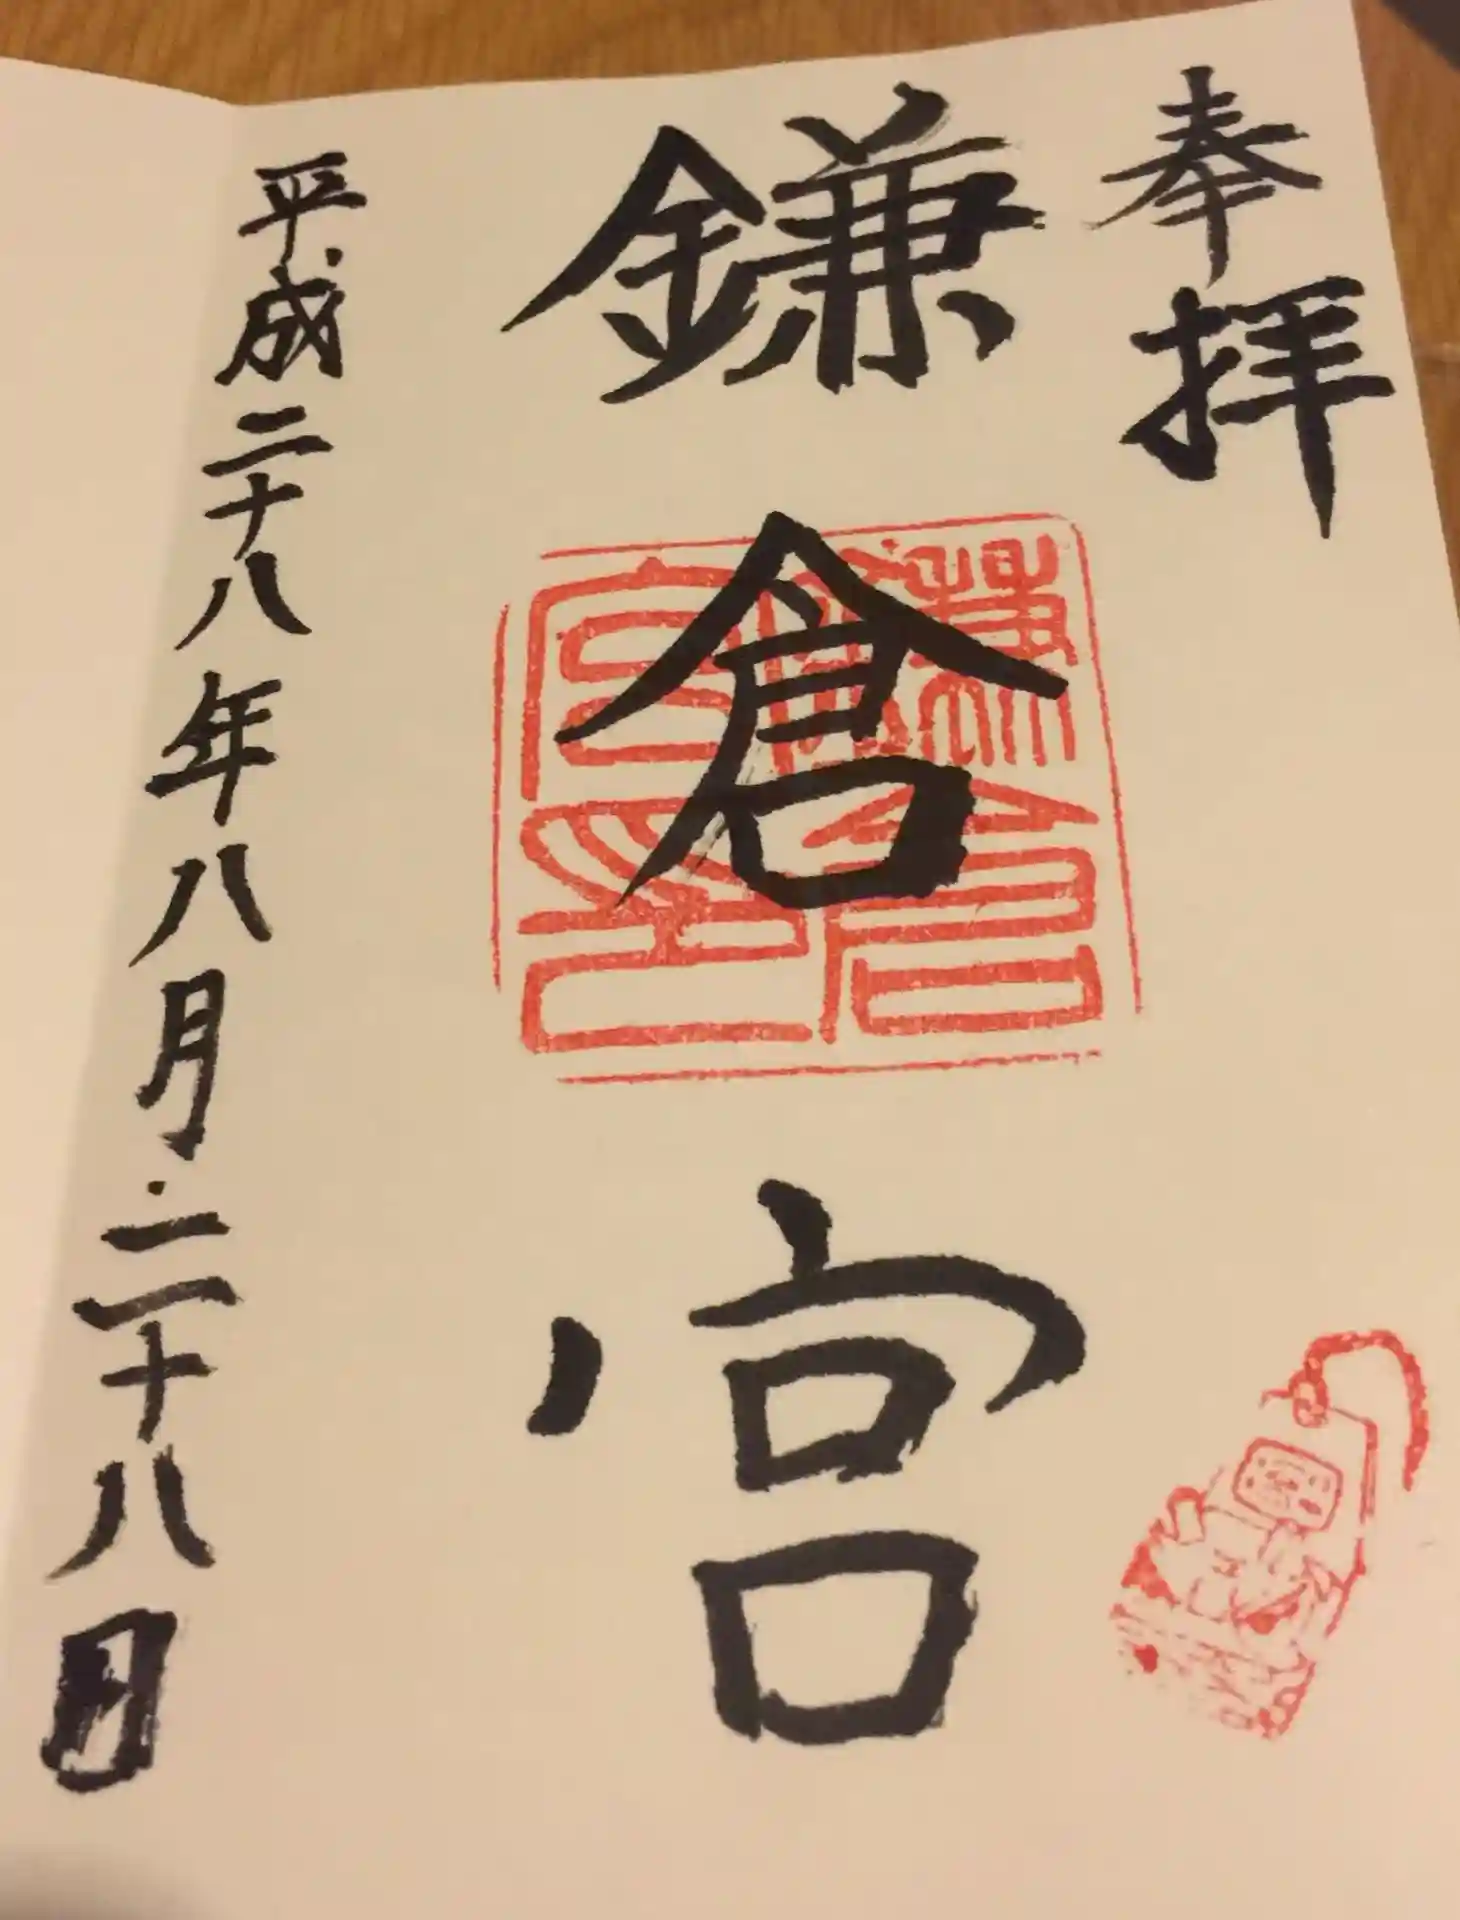 奉拝
鎌倉宮
鎌倉宮印
平成二十八年八月二十八日